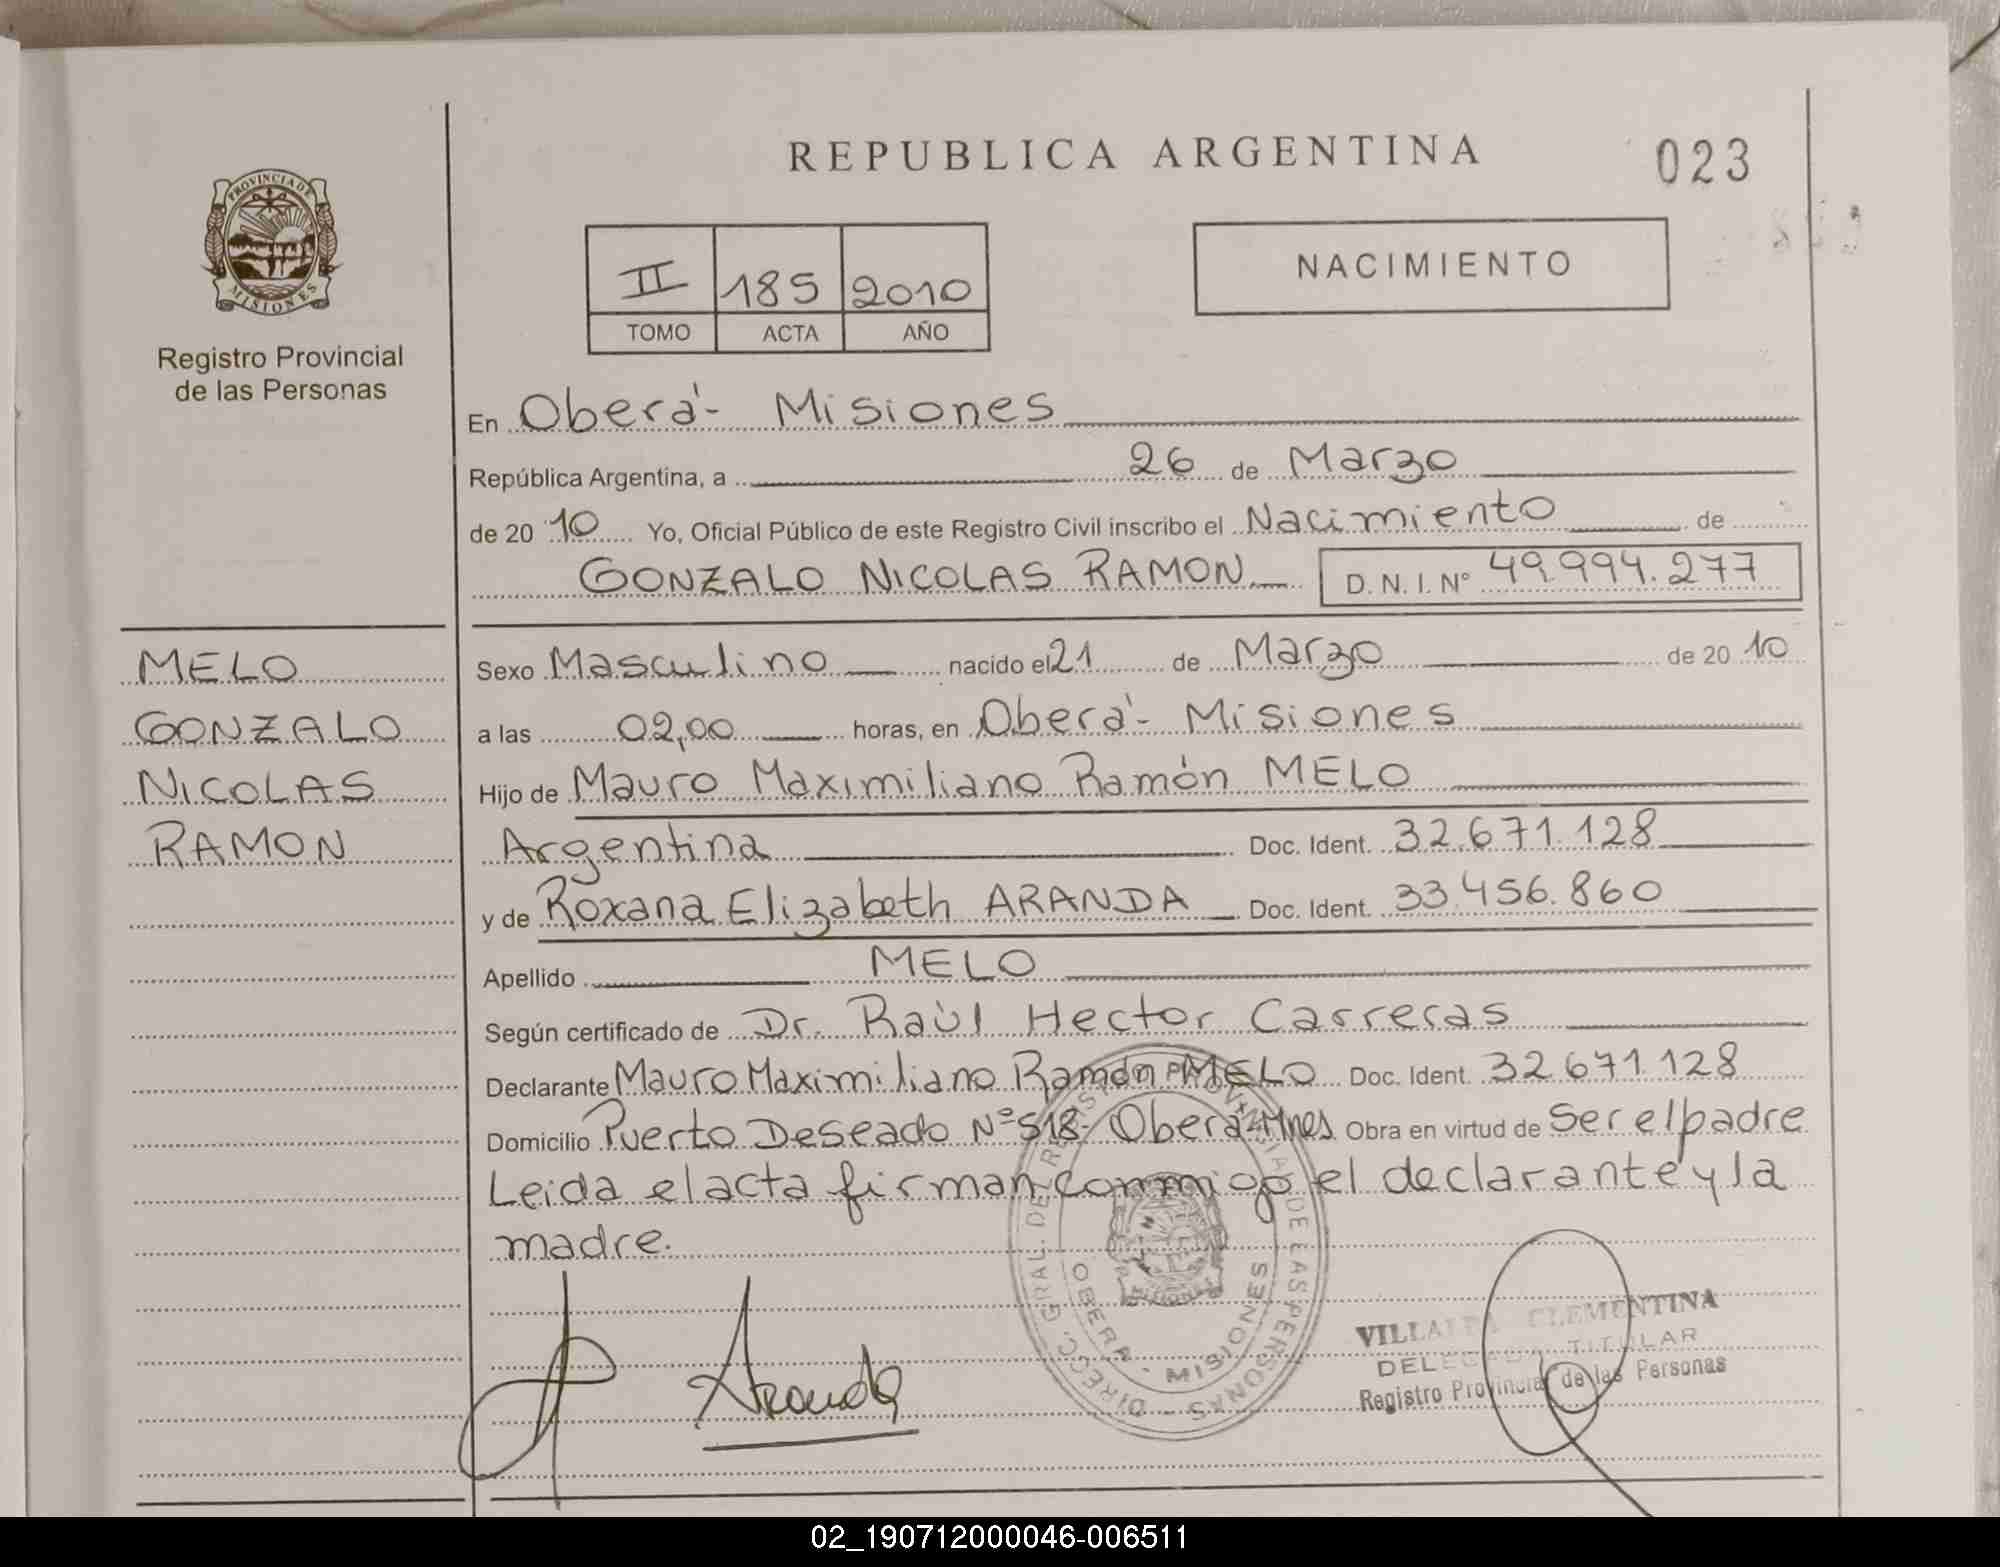 REPUBLICA ARGENTINA
023
PROVINCIA DE
MISIONES
Registro Provincial
de las Personas
II 185 2010
TOMO ACTA AÑO
NACIMIENTO
En Oberá - Misiones
República Argentina, a 26 de Marzo
de 20 10 Yo, Oficial Público de este Registro Civil inscribo el Nacimiento de
GONZALO NICOLAS RAMON D.N.I. Nº 49.994.277
MELO
GONZALO
NICOLAS
RAMON
Sexo Masculino nacido el 21 de Marzo de 20 10
a las 02,00 horas, en Oberá - Misiones
Hijo de Mauro Maximiliano Ramón MELO
Argentina Doc. Ident. 32.671.128
y de Roxana Elizabeth ARANDA Doc. Ident. 33.456.860
Apellido MELO
Según certificado de Dr. Raúl Hector Carreras
Declarante Mauro Maximiliano Ramón MELO Doc. Ident. 32.671.128
Domicilio Puerto Deseado Nº 518 - Oberá - Mnes Obra en virtud de Ser el padre
Leida el acta firman conmigo el declarante y la
madre.
DIRECC. GRAL. DEL REGISTRO PROVINCIAL DE LAS PERSONAS
OBERA - MISIONES
Aranda
VILLALBA CLEMENTINA
DELEGADA TITULAR
Registro Provincial de las Personas
02_190712000046-006511